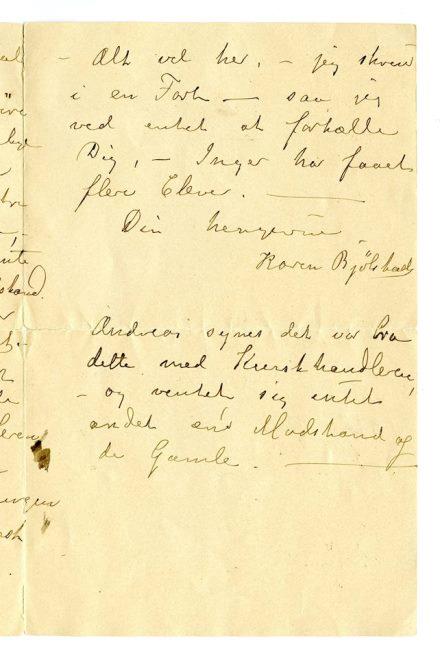 – Alt vel her, – jeg skriver
i en Fart – saa jeg
ved intet at fortælle
Dig, – Inger har faaet
flere Elever.
Din hengivne
Karen Bjølstad
Andreas synes det var bra
dette med Kunsthandleren,
– og ventet sig intet
andet end Modstand og
de Gamle.